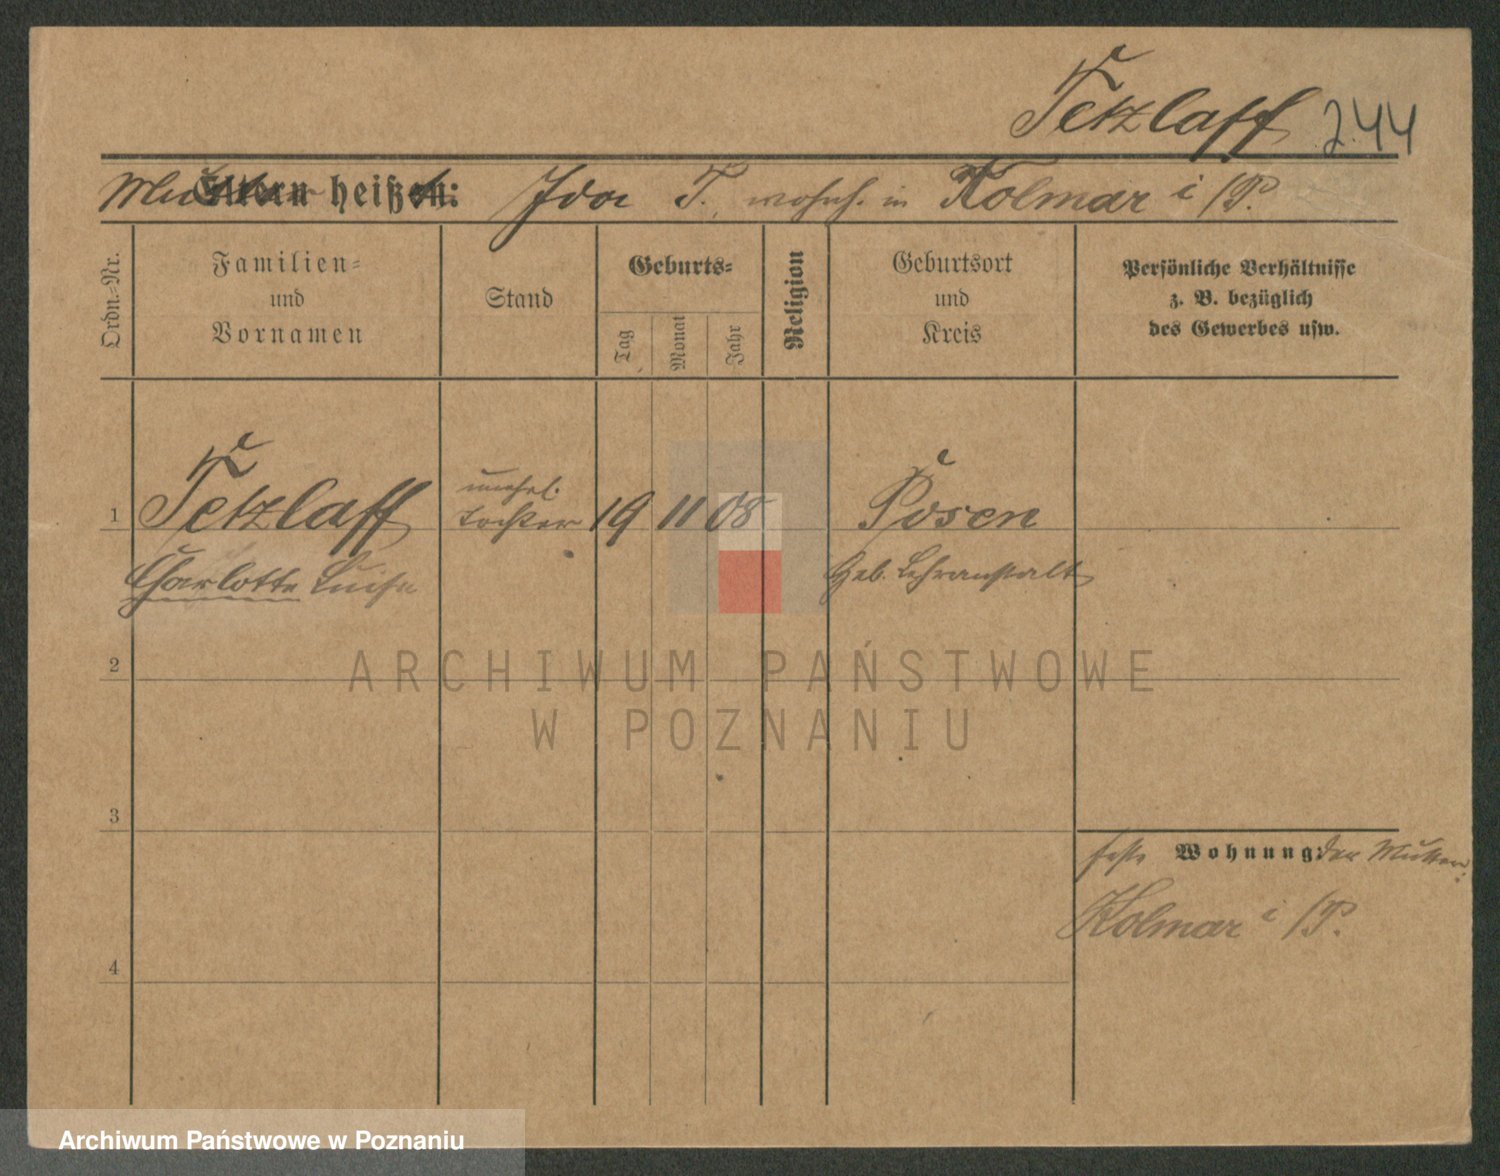 Tetzlaff 244
Mutter heißt: Ida T., wohnh. in Kolmar i/P.
Ordn.-Nr.
Familien-
und
Vornamen
Stand
Geburts-
Tag
Monat
Jahr
Religion
Geburtsort
und
Kreis
Persönliche Verhältnisse
z. B. bezüglich
des Gewerbes usw.
1 Tetzlaff unehel. Tochter 19 11 08 Posen
Charlotte Luise Heb. Lehranstalt
2
ARCHIWUM PAŃSTWOWE
W POZNANIU
3
feste Wohnung: der Mutter.
Kolmar i/P.
4
Archiwum Państwowe w Poznaniu